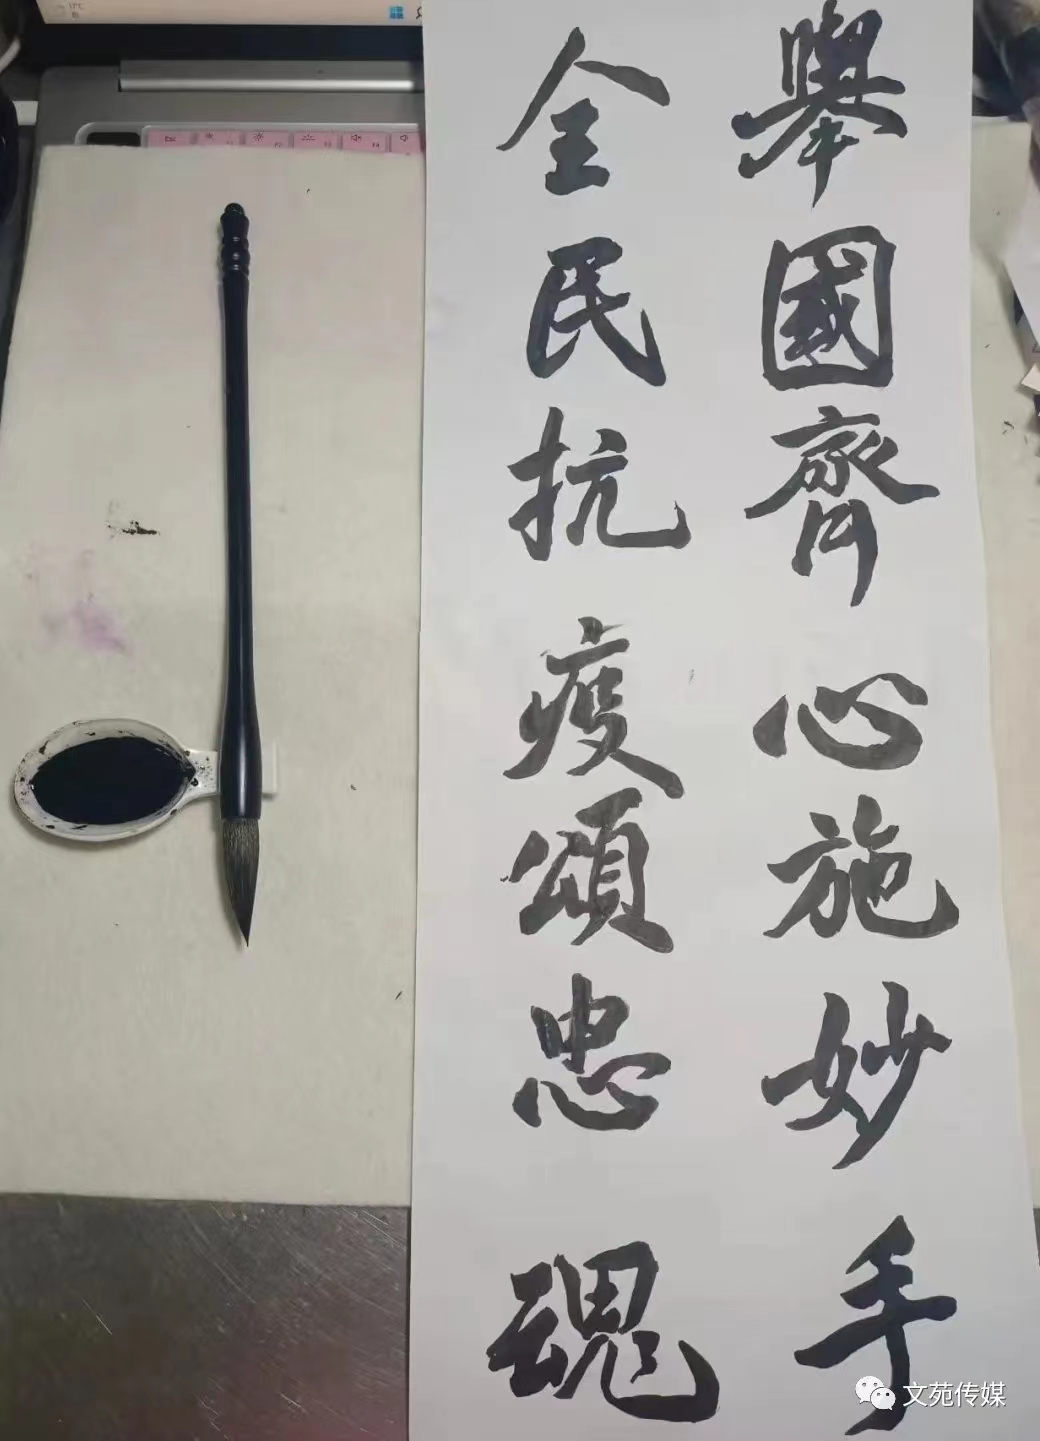 舉國齊心施妙手
全民抗疫頌忠魂
文苑传媒